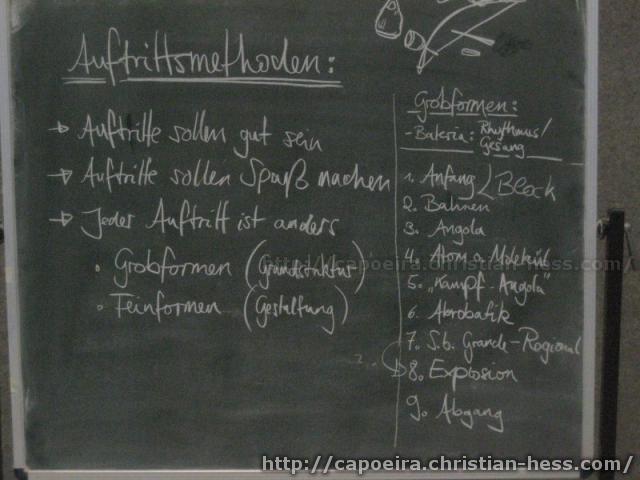 Auftrittsmethoden:
→ Auftritte sollen gut sein
→ Auftritte sollen Spaß machen
→ Jeder Auftritt ist anders
• Grobformen (Grundstruktur)
• Feinformen (Gestaltung)
Grobformen:
- Bateria: Rhythmus/
Gesang
1. Anfang / Block
2. Bahnen
3. Angola
4. Atom o. Molekül
5. "Kampf-Angola"
6. Akrobatik
7. S.b. Grande-Regional
8. Explosion
9. Abgang
http://capoeira.christian-hess.com/
http://capoeira.christian-hess.com/